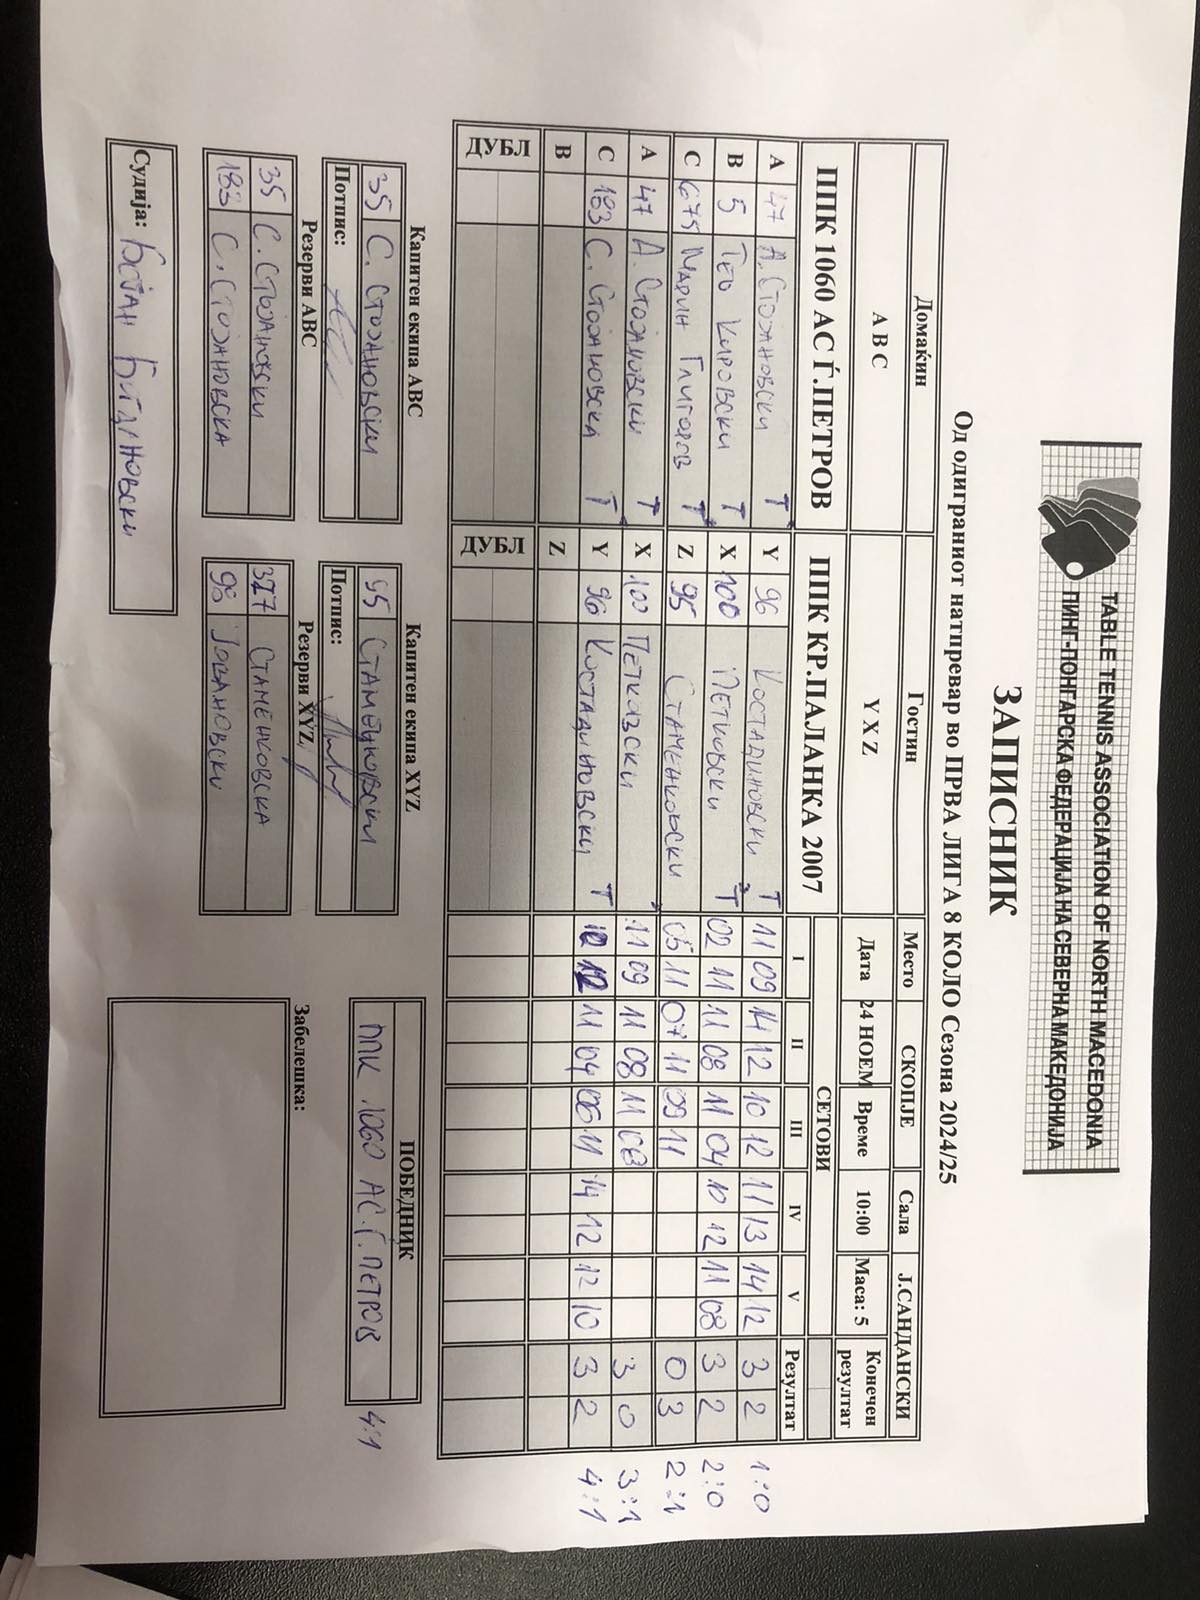 TABLE TENNIS ASSOCIATION OF NORTH MACEDONIA
ПИНГ-ПОНГАРСКА ФЕДЕРАЦИЈА НА СЕВЕРНА МАКЕДОНИЈА
ЗАПИСНИК
Од одиграниот натпревар во ПРВА ЛИГА 8 КОЛО Сезона 2024/25
Домаќин Гостин Место СКОПЈЕ Сала Ј.САНДАНСКИ
A B C Y X Z Дата 24 НОЕМ Време 10:00 Маса: 5 Конечен резултат
ППК 1060 АС Ѓ.ПЕТРОВ ППК КР.ПАЛАНКА 2007 СЕТОВИ
I II III IV V Резултат
A 47 А. СТОЈАНОВСКИ Т Y 96 КОСТАДИНОВСКИ Т 11 09 14 12 10 12 11 13 14 12 3 2 1:0
B 5 ТЕО КИРОВСКИ Т X 100 ПЕТКОВСКИ Т 02 11 11 08 11 04 10 12 11 08 3 2 2:0
C 675 МАРИН ГЛИГОРОВ Т Z 95 СТАМЕНКОВСКИ 05 11 07 11 09 11 0 3 2:1
A 47 А. СТОЈАНОВСКИ Т X 100 11 09 11 08 11 08 3 0 3:1
C 183 С. СТОЈАНОВСКА Т Y 96 КОСТАДИНОВСКИ Т 12 11 04 06 11 14 12 12 10 3 2 4:1
B Z
ДУБЛ ДУБЛ
Капитен екипа ABC Капитен екипа XYZ ПОБЕДНИК
35 С. СТОЈАНОВСКИ 95 СТАМЕНКОВСКИ ППК 1060 АС.Ѓ.ПЕТРОВ 4:1
Потпис: Потпис:
Резерви ABC Резерви XYZ Забелешка:
35 С. СТОЈАНОВСКИ 377 СТАМЕНКОВСКА
183 С. СТОЈАНОВСКА 98 ЈОВАНОВСКИ
Судија: БОЈАН